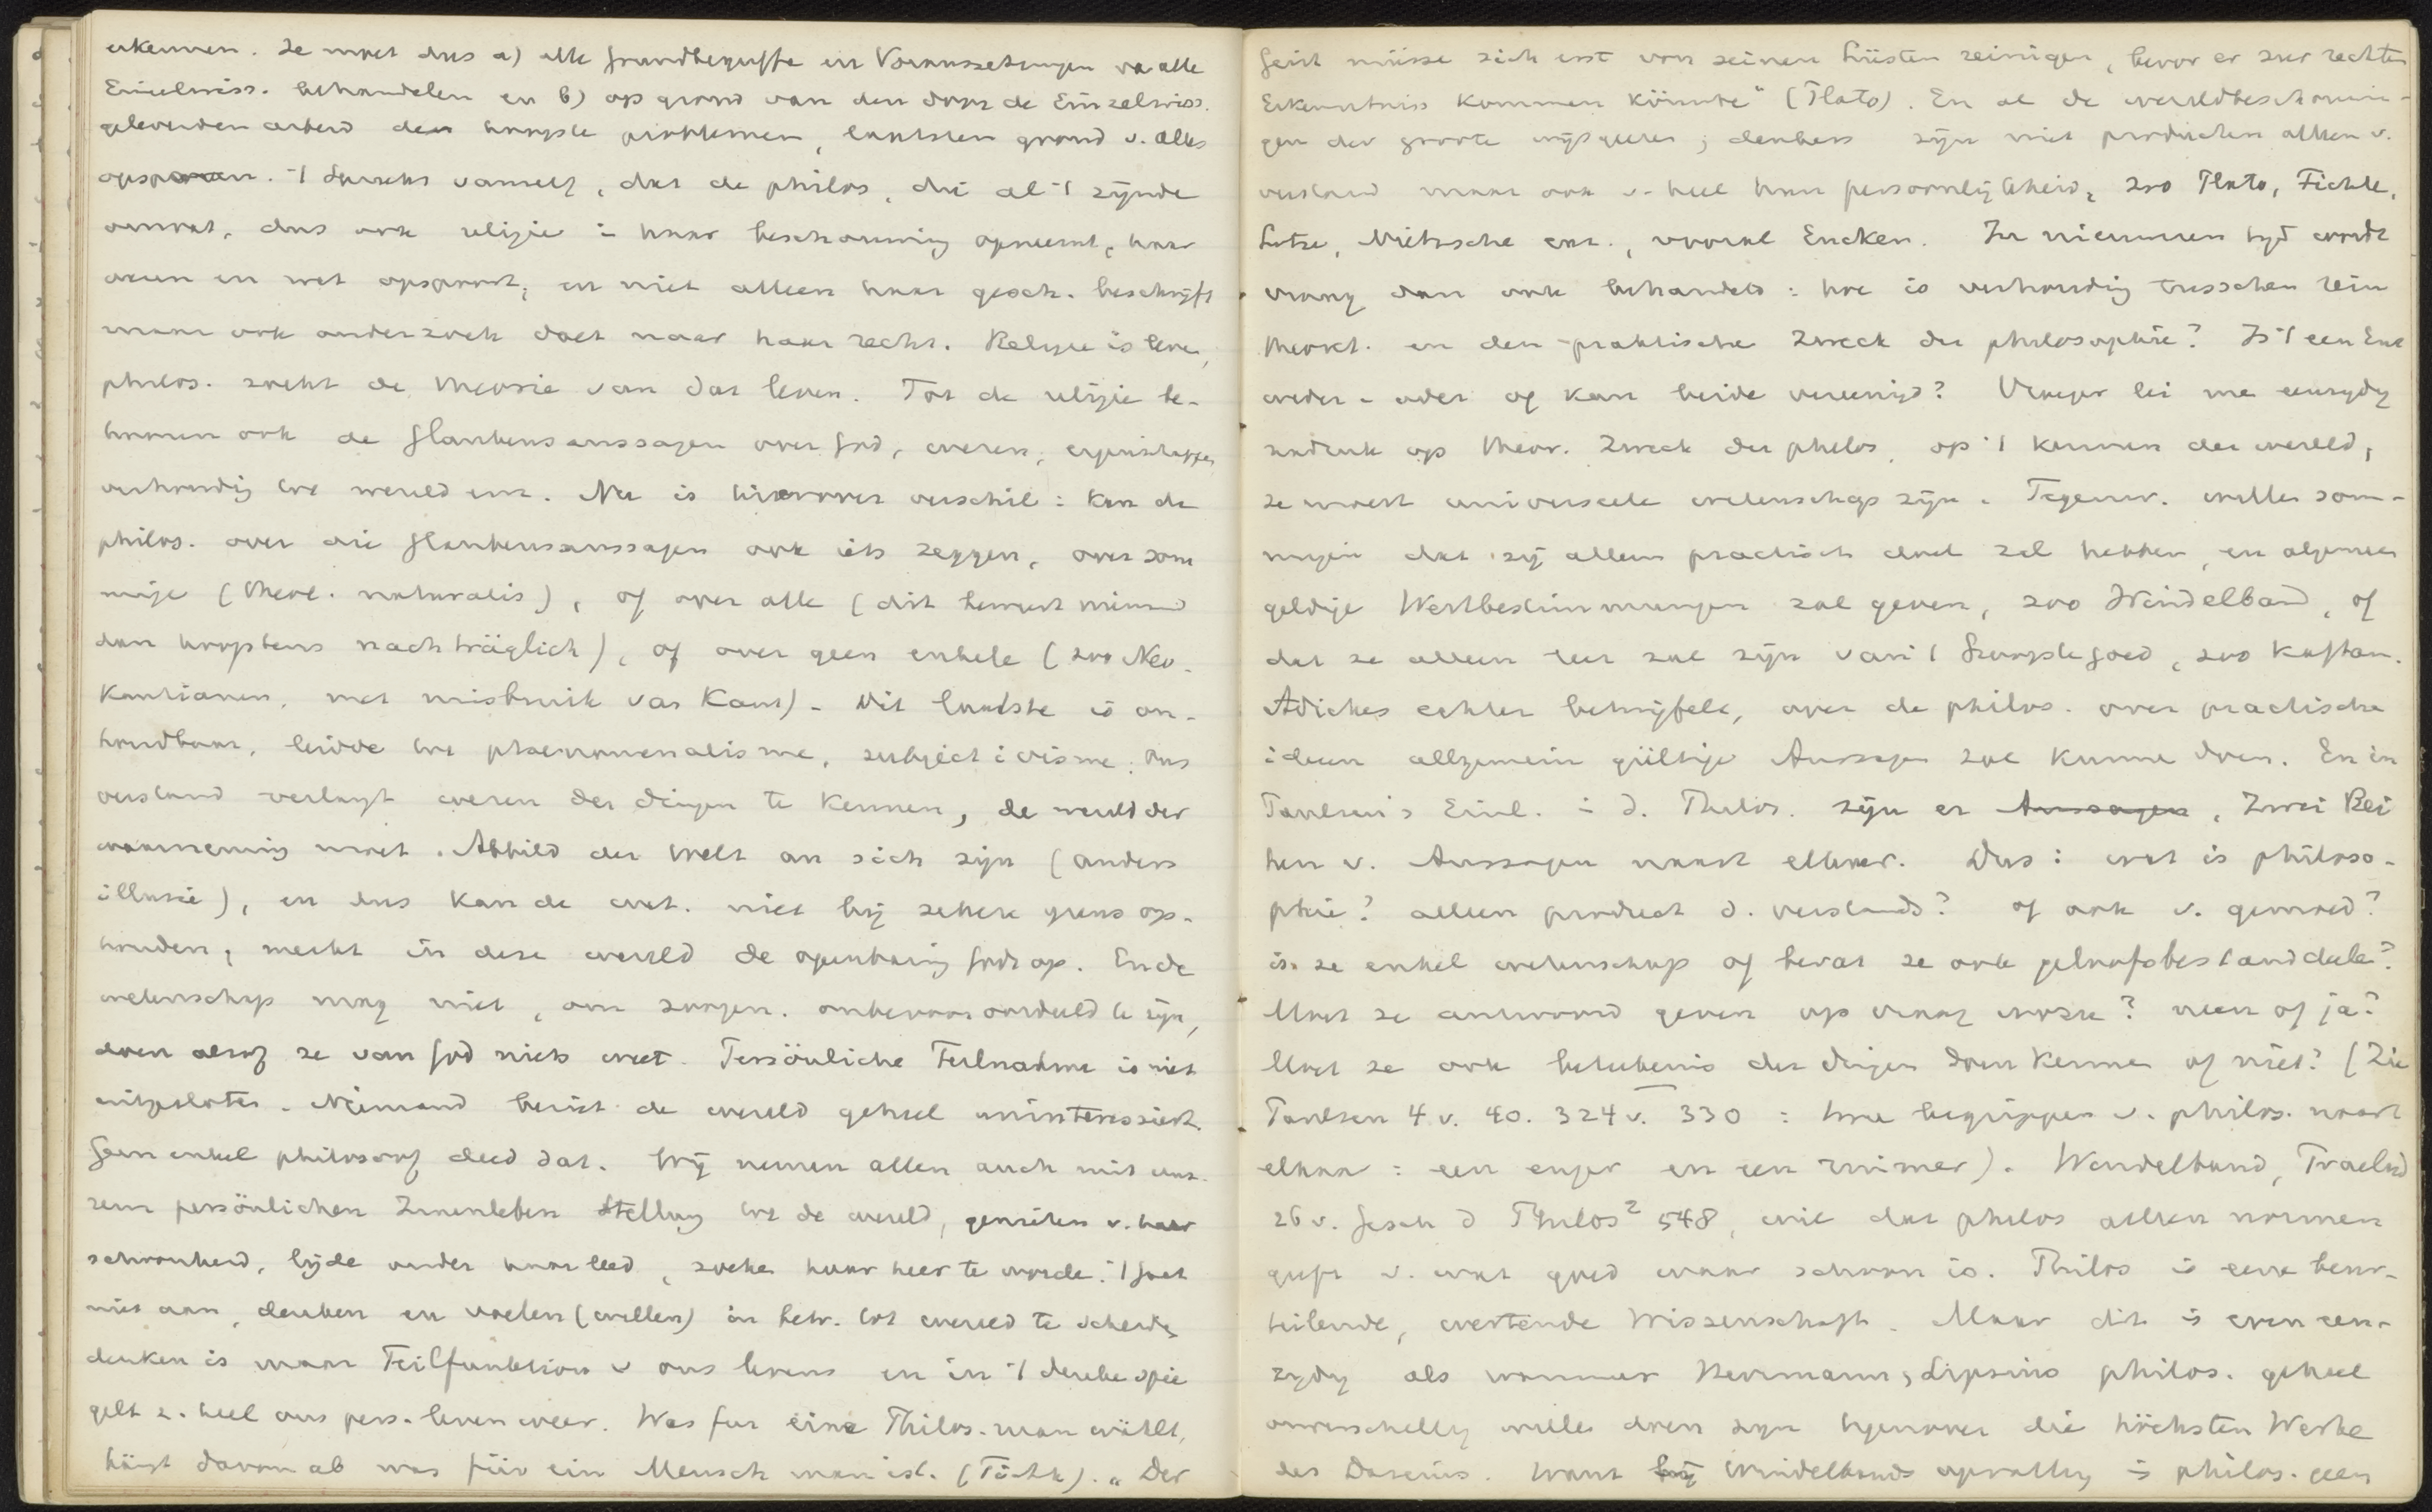 erkennen. Ze moet dus a) alle Grundbegriffe en Voraussetzungen va alle
Einzelwiss. behandelen en b) op grond van den door de Einzelwiss.
geleverden arbeid den hoogste problemen, laatsten grond v. alles
opsporen. 't Spreekt vanzelf, dat de philos, die al 't zijnde
omvat, dus ook religie i haar beschouwing opneemt, haar
wezen en wet opspoort, en niet alleen haar gesch. beschrijft
maar ook onderzoek doet naar haar recht. Religie is leven,
philos. zoekt de theorie van dat leven. Tot de religie be-
hooren ook de Glaubensaussagen over God, wezen, eigenschappen,
verhoudig tot wereld enz. Nu is hierover verschil: kan de
philos. over die Glaubensaussagen ook iets zeggen, over som
mige (theol. naturalis), of over alle (dit beweert niemand
dan hoogstens nachträglich), of over geen enkele (zoo Neo-
Kantianen, met misbruik van Kant). Dit laatste is on-
houdbaar, leidde tot phaenomenalisme, subjectivisme. Ons
verstand verlangt wezen der dingen te kennen, de wereld der
waarneming moet Abbild der Welt an sich zijn (anders
illusie), en dus kan de wet. niet bij zekere grens op-
houden, merkt in deze wereld de openbaring Gods op. En de
wetenschap mag niet, om zoogen. onbevooroordeeld te zijn,
doen alsof ze van God niets weet. Persönliche Teilnahme is niet
uitgesloten. Niemand beziet de wereld geheel uninteressiert.
Geen enkel philosoof deed dat. Wij nemen allen auch mit uns-
rem persönlichen Innenleben Stellung tot de wereld, genieten v. haar
schoonheid, lijde onder haar leed, zoeke haar heer te worde. 't Gaat
niet aan, denken en voelen (willen) in betr. tot wereld te scheide
denken is maar Teilfunktion v ons levens en in 't denke spie
gelt z. heel ons pers. leven weer. Was fur eine Philos. man wählt,
hängt davon ab was für ein Mensch man ist. (Fichte). „Der
Geist müsse sich erst von seinen Lüsten reinigen, bevor er zur rechten
Erkenntniss kommen könnte" (Plato). En al de wereldbeschouwin-
gen der groote wijsgeeren, denkers zijn niet producten alleen v.
verstand maar ook v. heel hun persoonlijkheid, zoo Plato, Fichte,
Lotze, Nietzsche enz., vooral Eucken. In nieuweren tijd wordt
vraag dan ook behandeld: hoe is verhoudig tusschen rein
theoret. en den praktische Zweck der philosophie? Is 't een Ent
weder-oder of kan beide vereenigd? Vroeger lei me eenzijdig
nadruk op theor. Zweck der philos, op 't kennen der wereld,
ze moest universeele wetenschap zijn. Tegenw. wille som-
migen dat zij alleen practisch doel zal hebben, en algemeen
geldige Wertbestimmungen zal geven, zoo Windelband, of
dat ze alleen leer zal zijn van 't hoogste goed, zoo Kaftan.
Adickes echter betwijfelt, over de philos. over practische
ideen allgemein gültige Aussagen zal kunne doen. En in
Paulsen's Einl. i d. Philos. zijn er Aussagen, Zwei Rei
hen v. Aussagen naast elkaar. Dus: wat is philoso-
phie? alleen product d. verstands? of ook v. gemoed?
is ze enkel wetenschap of bevat ze ook geloofsbestanddeele?
Moet ze antwoord geven op vraag waartoe? neen of ja?
Moet ze ook beteekenis der dingen doen kenne of niet? (Zie
Paulsen 4 v. 40. 324 v. 330 : twee begrippen v. philos. naast
elkaar: een enger en een ruimer). Windelband, Praelud
26 v. Gesch d Philos² 548, wil dat philos alleen normen
geeft v. wat goed waar schoon is. Philos is eene beur-
teilende, wertende Wissenschaft. Maar dit is even een-
zijdig als wanneer Herrmann, Lipsius philos. geheel
onverschillig wille doen zijn tegenover die höchsten Werte
des Daseins. Want bij Windelbands opvatting is philos. geen